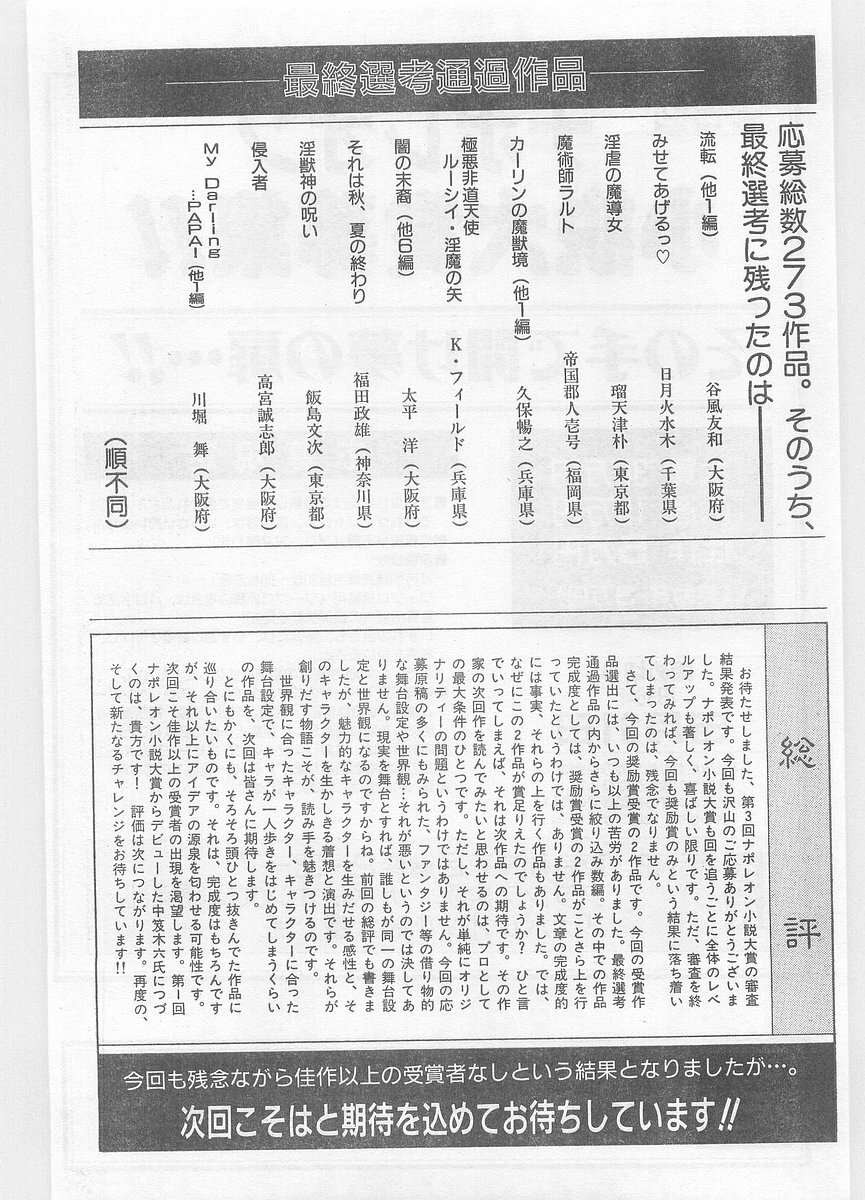 最終選考通過作品
応募総数273作品。そのうち、
最終選考に残ったのは――
流転(他1編) 谷風友和(大阪府)
みせてあげるっ♡ 日月火水木(千葉県)
淫虐の魔導女 瑠天津朴(東京都)
魔術師ラルト 帝国郡人壱号(福岡県)
カーリンの魔獣境(他1編) 久保暢之(兵庫県)
極悪非道天使
ルーシイ・淫魔の矢 K・フィールド(兵庫県)
闇の末裔(他6編) 太平 洋(大阪府)
それは秋、夏の終わり 福田政雄(神奈川県)
淫獣神の呪い 飯島文次(東京都)
侵入者 高宮誠志郎(大阪府)
My Darling
…PAPA!(他1編) 川堀 舞(大阪府)
(順不同)
総評
お待たせしました、第3回ナポレオン小説大賞の審査
結果発表です。今回も沢山のご応募ありがとうございま
した。ナポレオン小説大賞も回を追うごとに全体のレベ
ルアップも著しく、喜ばしい限りです。ただ、審査を終
わってみれば、今回も奨励賞のみという結果に落ち着い
てしまったのは、残念でなりません。
さて、今回の奨励賞受賞の2作品です。今回の受賞作
品選出には、いつも以上の苦労がありました。最終選考
通過作品の内からさらに絞り込み数編。その中での作品
完成度としては、奨励賞受賞の2作品がことさら上を行
っていたというわけでは、ありません。文章の完成度的
には事実、それらの上を行く作品もありました。では、
なぜにこの2作品が賞足りえたのでしょうか? ひと言
でいってしまえば、それは次作品への期待です。その作
家の次回作を読んでみたいと思わせるのは、プロとして
の最大条件のひとつです。ただし、それが単純にオリジ
ナリティーの問題というわけではありません。今回の応
募原稿の多くにもみられた、ファンタジー等の借り物的
な舞台設定や世界観…それが悪いというのでは決してあ
りません。現実を舞台とすれば、誰しもが同一の舞台設
定と世界観になるのですからね。前回の総評でも書きま
したが、魅力的なキャラクターを生みだせる感性と、そ
のキャラクターを生かしきる着想と演出です。それらが
創りだす物語こそが、読み手を魅きつけるのです。
世界観に合ったキャラクター、キャラクターに合った
舞台設定で、キャラが一人歩きをはじめてしまうくらい
の作品を、次回は皆さんに期待します。
とにもかくにも、そろそろ頭ひとつ抜きんでた作品に
巡り合いたいものです。それは、完成度はもちろんです
が、それ以上にアイデアの源泉を匂わせる可能性です。
次回こそ佳作以上の受賞者の出現を渇望します。第1回
ナポレオン小説大賞からデビューした中笈木六氏につづ
くのは、貴方です! 評価は次につながります。再度の、
そして新たなるチャレンジをお待ちしています!!
今回も残念ながら佳作以上の受賞者なしという結果となりましたが…。
次回こそはと期待を込めてお待ちしています!!